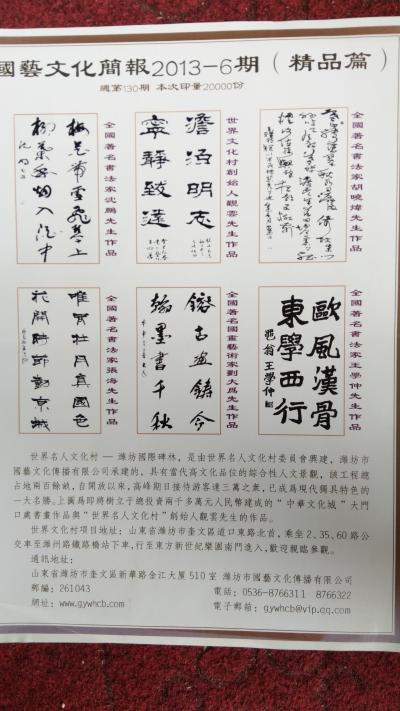 國藝文化簡報2013-6期（精品篇）
總第130期 本次印量20000份
全國著名書法家沈鵬先生作品
梅花帶雪飛琴上
柳
入酒中
世界文化村創始人觀雲先生作品
澹泊明志
寧靜致遠
全國著名書法家胡曉煒先生作品
全國著名書法家張海先生作品
唯有牡丹真國色
花開時節動京城
全國著名國畫藝術家劉大爲先生作品
鎔古鑄今
翰墨書千秋
全國著名書法家王學仲先生作品
歐風漢骨
東學西行
王學仲
世界名人文化村 — 濰坊國際碑林，是由世界名人文化村委員會興建，濰坊市
國藝文化傳播有限公司承建的，具有當代高文化品位的綜合性人文景觀，該工程總
占地兩百餘畝，自開放以來，高峰期日接待游客達三萬之衆，已成爲現代獨具特色的
一大名勝。上圖爲即將樹立于總投資兩千多萬元人民幣建成的“中華文化城”大門
口處書畫作品與“世界名人文化村”創始人觀雲先生的作品。
世界文化村項目地址：山東省濰坊市奎文區道口東路北首，乘坐2、35、60路公
交車至濰州路鐵路橋站下車，行至東方新世紀樂園南門進入，歡迎親臨參觀。
通訊地址：
山東省濰坊市奎文區新華路金江大厦510室 濰坊市國藝文化傳播有限公司
郵編：261043 電話：0536-8766311 8766322
網址：www.gywhcb.com 電子郵箱：gywhcb@vip.qq.com